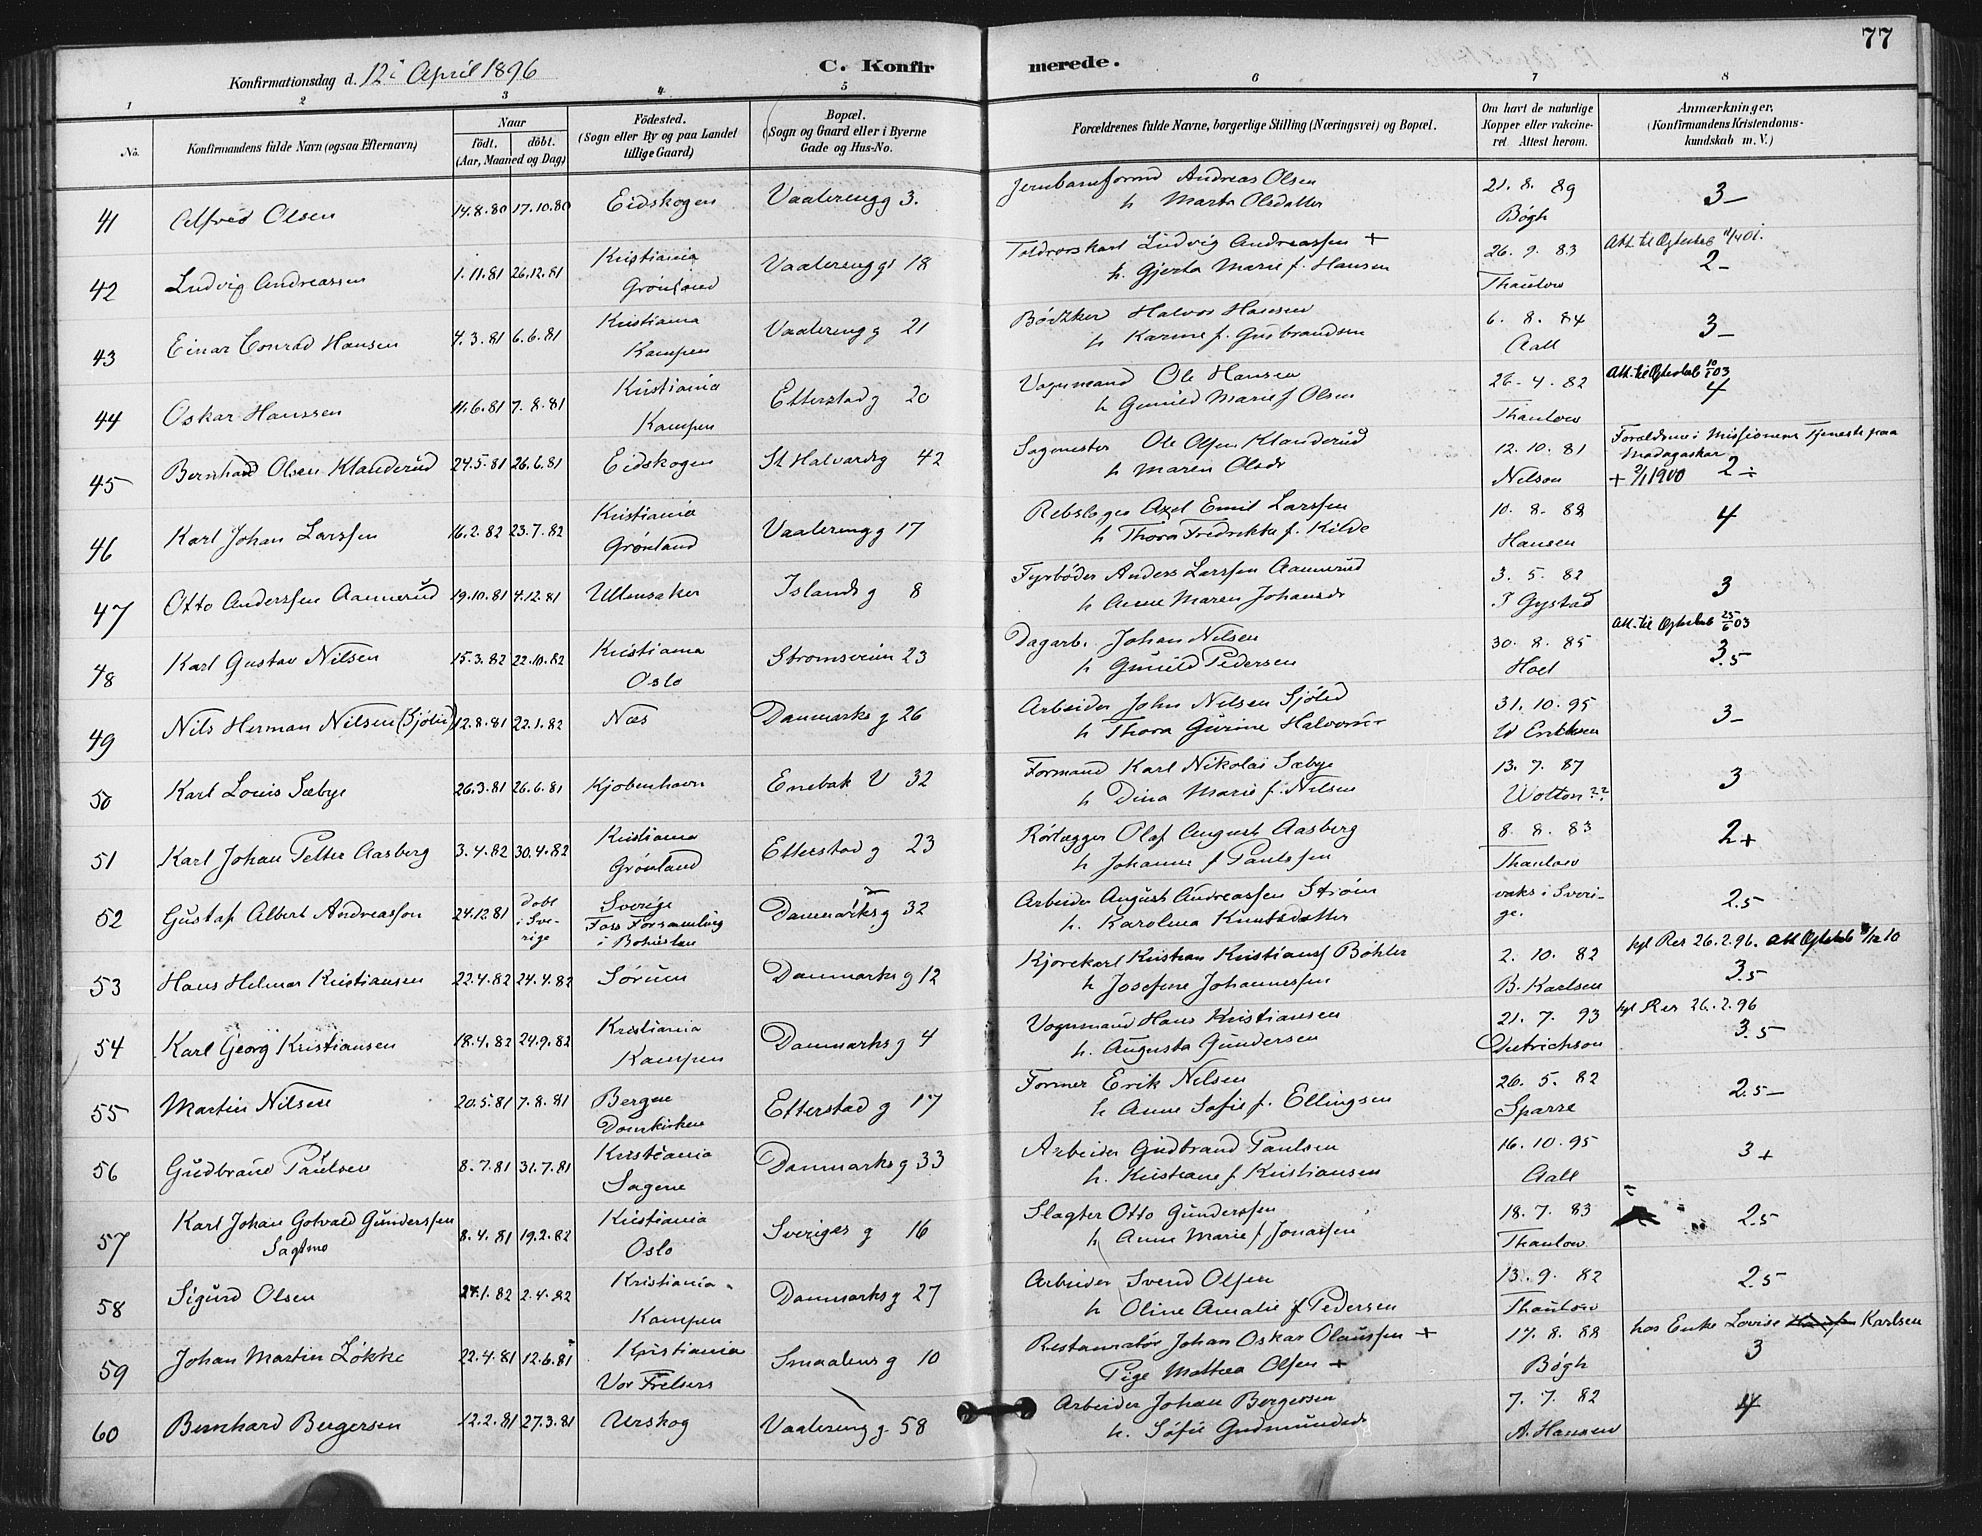 77
Konfirmationsdag d. 12 i April 1896 C. Konfirmerede.
1 2 3 4 5 6 7 8
No. Konfirmandens fulde Navn (ogsaa Efternavn) Naar født. døbt. (Aar, Maaned og Dag) Fødested. (Sogn eller By og paa Landet tillige Gaard) Bopæl. (Sogn og Gaard eller i Byerne Gade og Hus-No. Forældrenes fulde Navne, borgerlige Stilling (Næringsvei) og Bopæl. Om havt de naturlige Kopper eller vakcineret. Attest herom. Anmærkninger. (Konfirmandens Kristendomskundskab m. V.)
41 Alfred Olsen 14.8.80 17.10.80 Eidskogen Vaalerengg 3. Jernbaneformd Andreas Olsen 21. 8. 89 3-
h Marta Olsdatter Bøgh
42 Ludvig Andreassen 1.11.81 26.12.81 Kristiania Grønland Vaalerengg 18 Toldrorskarl Ludvig Andreassen + 26. 9. 83 Att. til Ægteskab 11/4 01.
h. Gjerta Marie f. Hansen Thaulow 2-
43 Einar Conrad Hansen 4.3.81 6.6.81 Kristiania Kampen Vaalereng g 21 Bødker Halvor Hansen 6. 8. 84 3-
h Karine f. Gudbrandsen Aall
44 Oskar Hanssen 11.6.81 7.8.81 Kristiania Kampen Etterstad g 20 Vognmand Ole Hansen 26. 4. 82 Att. til Ægteskab 10/5 03
h Gunild Marie f Olsen Thaulow 4
45 Bernhard Olsen Klanderud 24.5.81 26.6.81 Eidskogen St Halvardsg 42 Sagmester Ole Olsen Klanderud 12. 10. 81 Forældrene i Missionens Tjeneste paa Madagaskar
h Maren Olsdr Nilson + 1900 2÷
46 Karl Johan Larssen 16.2.82 23.7.82 Kristiania Grønland Vaalerengg 17 Rebslager Axel Emil Larssen 10. 8. 88 4
h Thora Fredrikke f. Kilde Hansen
47 Otto Anderssen Aannerud 19.10.81 4.12.81 Ullensaker Islands g 8 Fyrbøder Anders Larssen Aannerud 3. 5. 82 3
h Anne Maren Johansdr Gystad
48 Karl Gustav Nilsen 15.3.82 22.10.82 Kristiania Oslo Strømsveien 23 Dagarb. Johan Nilsen 30. 8. 85 Att. til Ægteskab 25/6 03
h Gunild Pedersen Hoel 3.5
49 Nils Herman Nilsen (Sjølid) 12.8.81 22.1.82 Næs Danmarks g 26 Arbeider John Nilsen Sjølid 31. 10. 95 3-
h Thora Gurine Halvorsdr Eriksen
50 Karl Louis Sæbye 26.3.81 26.6.81 Kjøbenhavn Enebak V 32 Formand Karl Nikolai Sæbye 13. 7. 87 3
h Dina Marie f. Nilsen Wotton ??
51 Karl Johan Petter Aasberg 3.4.82 30.4.82 Kristiania Grønland Etterstad g 23 Rørlægger Olaf August Aasberg 8. 8. 83 2+
h Johanne f Paulssen Thaulow
52 Gustaf Albert Andreasson 24.12.81 døbt i Sverige Sverige Foss Forsamling i Bohuslæn Danmarksg 32 Arbeider August Andreassen Strøm vaks i Sverige. 2.5
h. Karolina Knutsdatter
53 Hans Helmar Kristiansen 22.4.82 24.4.82 Sørum Danmarks g 12 Kjørekarl Kristian Kristians Bøhler 2. 10. 82 kgl Res 26.2.96. Att Ægteskab 12 10
h Josefine Johannessen B. Karlsen 3.5
54 Karl Georg Kristiansen 18.4.82 24.9.82 Kristiania Kampen Danmarks g 4 Vognmand Hans Kristiansen 21. 7. 93 kgl Res 26.2.96
h. Augusta Gundersen Dietrichson 3.5
55 Martin Nilsen 20.5.81 7.8.81 Bergen Domkirken Etterstad g 17 Former Erik Nilsen 26. 5. 82 2.5-
h Anne Sofie f. Ellingsen Sparre
56 Gudbrand Paulsen 8.7.81 31.7.81 Kristiania Sagene Danmarks g 33 Arbeider Gudbrand Paulsen 16. 10. 95 3+
h. Kristiane f Kristiansen Aall
57 Karl Johan Gotvald Gunderssen Sagtmo 8.4.81 19.2.82 Kristiania Oslo Sveriges g 16 Slagter Otto Gunderssen 18. 7. 83 2.5
h Anne Marie f Jonassen Thaulow
58 Sigurd Olsen 24.1.82 2.4.82 Kristiania Kampen Danmarks g 27 Arbeider Svend Olsen 13. 9. 82 2.5
h Oline Amalie f Pedersen Thaulow
59 Johan Martin Løkke 22.4.81 12.6.81 Kristiania Vor Frelsers Smaalens g 10 Restauratør Johan Oskar Olaussen + 17. 8. 88 hos Enke Lovise Karlsen
Pige Mathea Olsen + Bøgh 3
60 Bernhard Bergersen 12.2.81 27.3.81 Urskog Vaalereng g. 58 Arbeider Johan Bergersen 7. 7. 82 4
h. Sofie Gudmundsdr A. Hansen